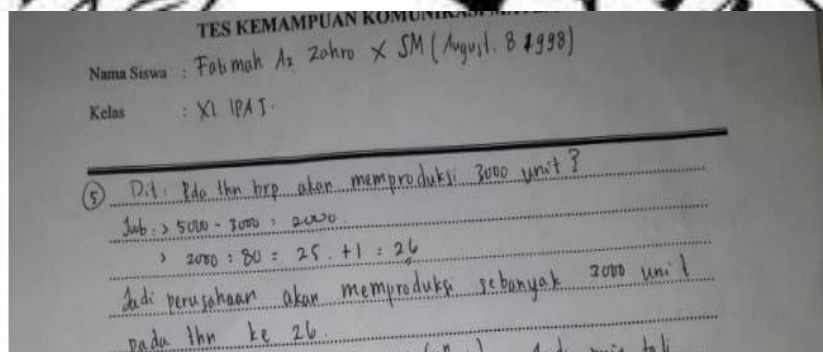 TES KEMAMPUAN KOMUNIKASI
Nama Siswa : Fatimah Az Zahro X SM (August. 8 1998)
Kelas : XI IPA I.
(5) Dit : Pda thn brp akan memproduksi 3000 unit ?
Jwb : > 5000 - 3000 : 2000
> 2000 : 80 = 25 . +1 : 26
Jadi perusahaan akan memproduksi sebanyak 3000 unit
pada thn ke 26.